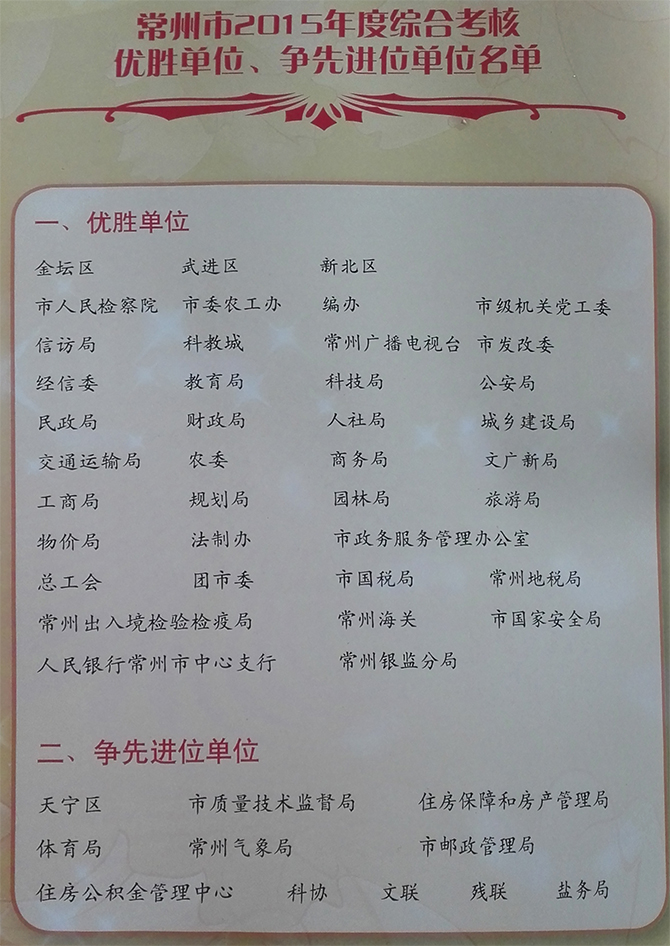 常州市2015年度综合考核
优胜单位、争先进位单位名单
一、优胜单位
金坛区 武进区 新北区
市人民检察院 市委农工办 编办 市级机关党工委
信访局 科教城 常州广播电视台 市发改委
经信委 教育局 科技局 公安局
民政局 财政局 人社局 城乡建设局
交通运输局 农委 商务局 文广新局
工商局 规划局 园林局 旅游局
物价局 法制办 市政务服务管理办公室
总工会 团市委 市国税局 常州地税局
常州出入境检验检疫局 常州海关 市国家安全局
人民银行常州市中心支行 常州银监分局
二、争先进位单位
天宁区 市质量技术监督局 住房保障和房产管理局
体育局 常州气象局 市邮政管理局
住房公积金管理中心 科协 文联 残联 盐务局